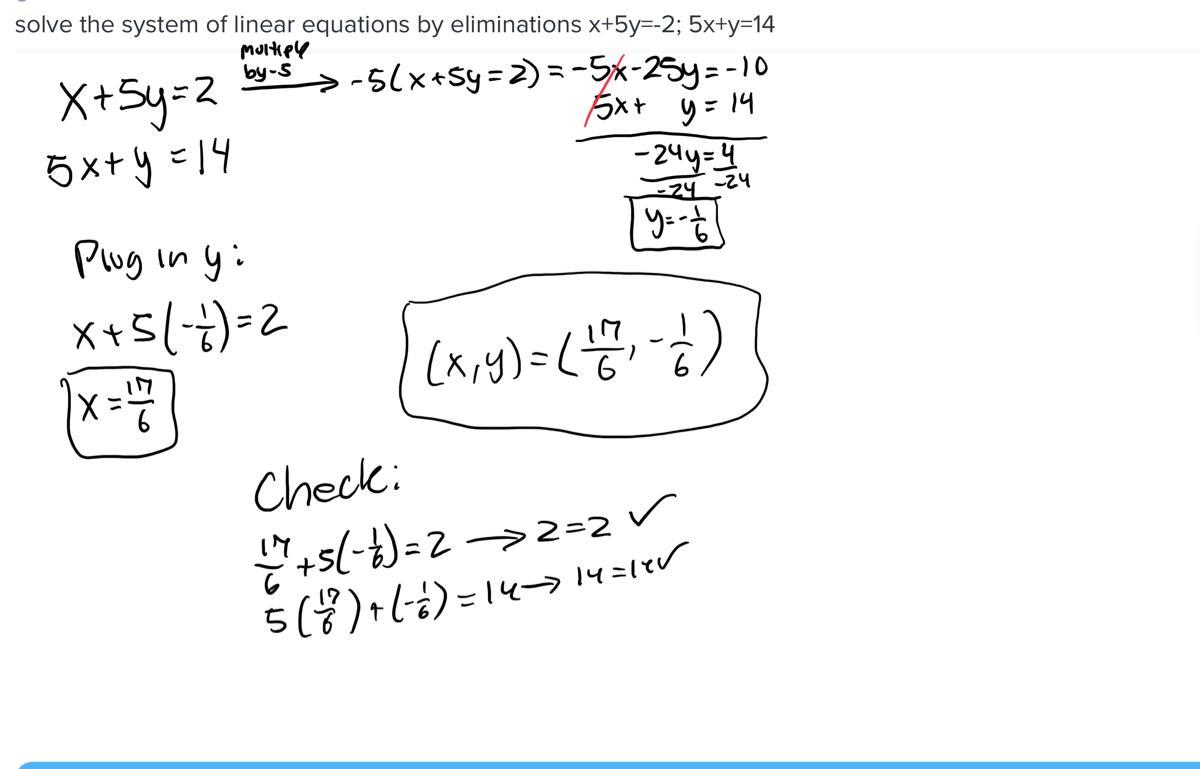 solve the system of linear equations by eliminations x+5y=-2; 5x+y=14
x+5y=2 multiply by-5 → -5(x+5y=2) = -5x-25y=-10
5x+y=14
5x+ y=14
-24y=4
-24 -24
y=-1/6
Plug in y:
x+5(-1/6)=2
x=17/6
(x,y)=(17/6,-1/6)
Check:
17/6+5(-1/6)=2 → 2=2 ✓
5(17/6)+(-1/6)=14→ 14=14✓